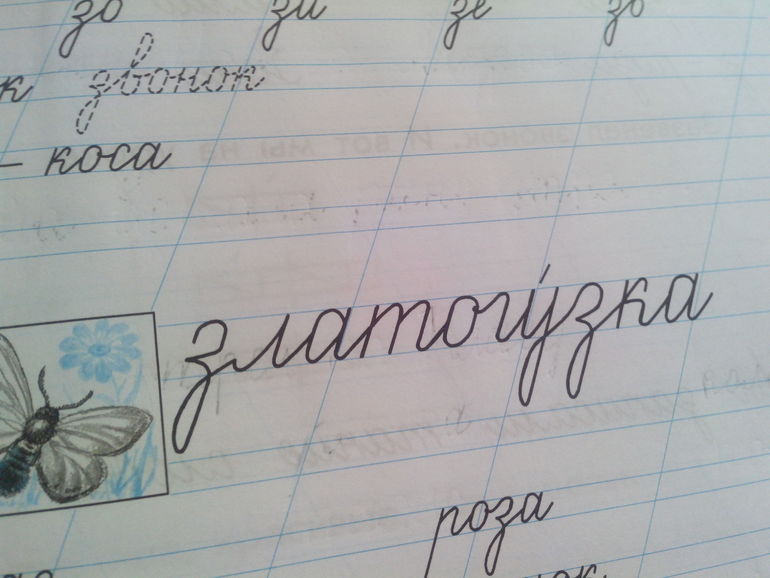 зо зи зе зо
к звонок
– коса
златогу́зка
роза